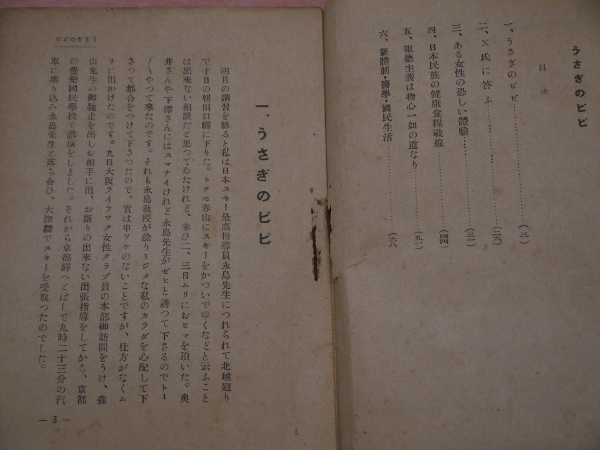 うさぎのピピ
目次
一、うさぎのピピ……(三)
二、X氏に答ふ……(三六)
三、ある女性の恐しい體驗……(三一)
四、日本民族の健康食糧戰線……(四一)
五、報德主義は物心一如の道なり……(五一)
六、新體制・醫學・國民生活……(六一)
うさぎのピピ
一、うさぎのピピ
四月の講習を終ると私は日本スキー最高指導員永島先生につれられて北越廻り
で十日の朝田口驛に下りた。トテモ春山にスキーをかついでゆくなどと云ふこと
は出來ない相談だと思つてゐたけれど、幸ひ二、三日ムリにおヒマを頂いた。奥
井さんや下澤さんにはスマナイけれど永島先生がゼヒと誘つて下さるのでトー
〱やつて來たのです。それも永島教授が餘りミジメな私のカラダを心配して下
さつて都合をつけて下さつたので、實は申ワケのないことですが、仕方がなくム
リに出かけたのです。九日大阪ライフマク女性クラブ員の本部御訪問をうけ、森
山先生の御馳走を出しお相手に出、お斷りの出來ない出張指導をしてから、京都
の豐樂國民學校で講演をしました。それから京都驛へとばして九時二十三分の汽
車に乘り込み永島先生と落ち合ひ、大津驛でスキーを受取つたのでした。
— 3 —